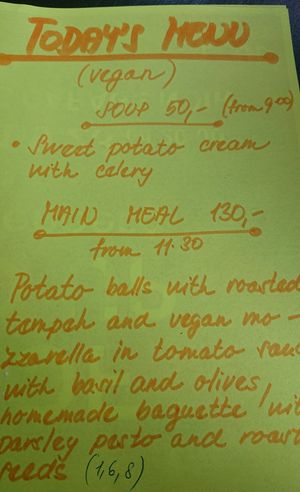 TODAY'S MENU
(vegan)
SOUP 50,- (from 9:00)
• Sweet potato cream
with celery
MAIN MEAL 130,-
from 11:30
Potato balls with roasted
tempeh and vegan mo-
zzarella in tomato sauc
with basil and olives,
homemade baguette wit
parsley pesto and roast
seeds (1,6,8)